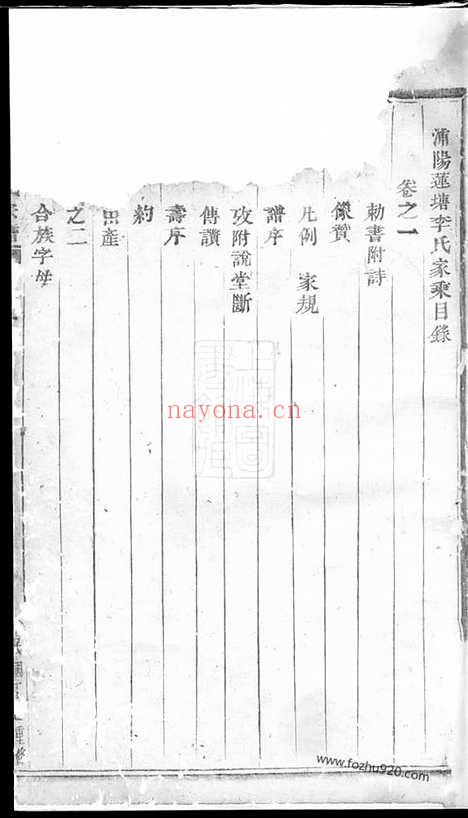 浦陽蓮塘李氏家乘目錄
卷之一
勅書附詩
像贊
凡例 家規
譜序
攷附說堂斷
傳讚
壽序
約
田產
之二
合族字母
nayona.cn
www.fozhu920.com